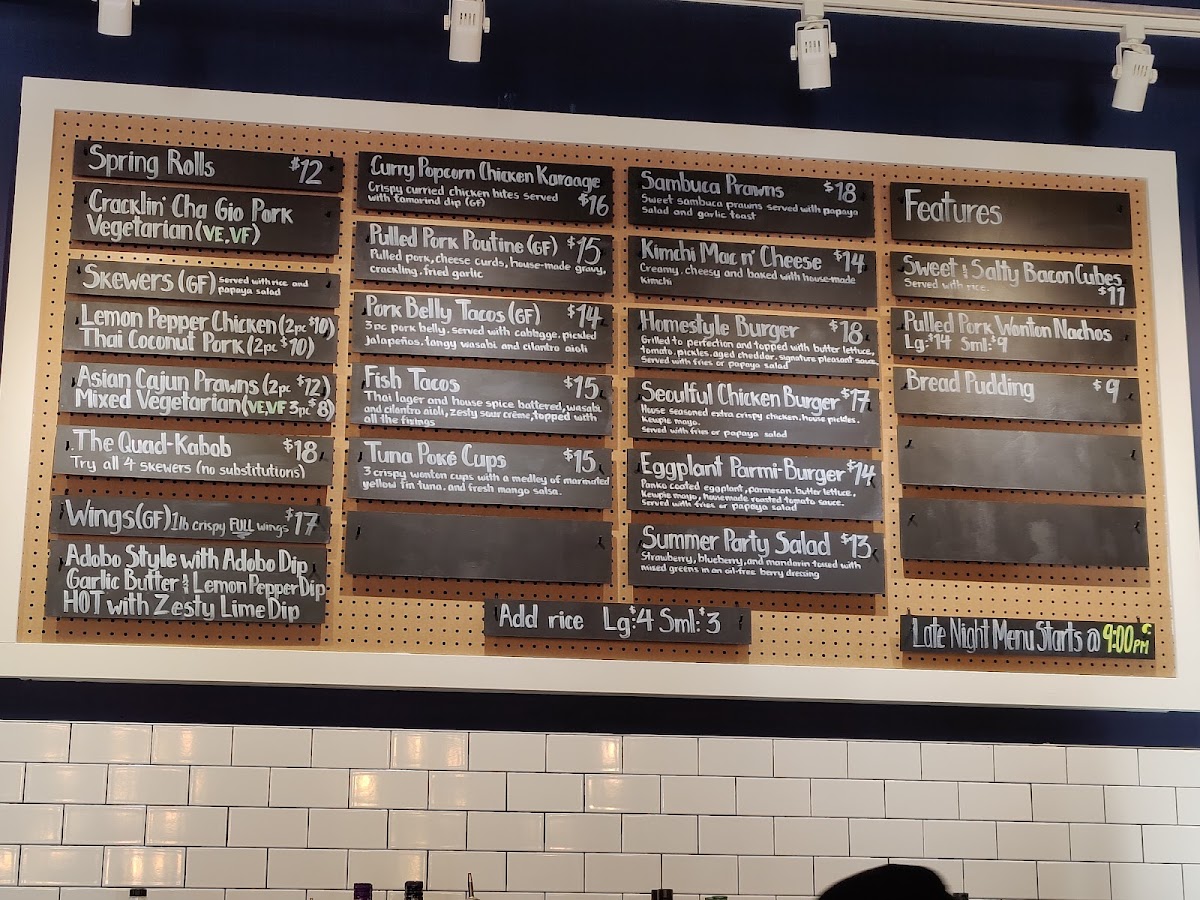 Spring Rolls $12
Cracklin' Cha Gio Pork
Vegetarian (VE,VF)
Skewers (GF) served with rice and
papaya salad
Lemon Pepper Chicken (2pc $10)
Thai Coconut Pork (2pc $10)
Asian Cajun Prawns (2pc $12)
Mixed Vegetarian (VE,VF 3pc $8)
The Quad-Kabob $18
Try all 4 skewers (no substitutions)
Wings (GF) 1lb crispy FULL wings $17
Adobo Style with Adobo Dip
Garlic Butter & Lemon Pepper Dip
HOT with Zesty Lime Dip
Curry Popcorn Chicken Karaage
Crispy curried chicken bites served
with tamarind dip (GF) $16
Pulled Pork Poutine (GF) $15
Pulled pork, cheese curds, house-made gravy,
crackling, fried garlic
Pork Belly Tacos (GF) $14
3 pc pork belly, served with cabbage, pickled
jalapeños, tangy wasabi and cilantro aioli
Fish Tacos $15
Thai lager and house spice battered, wasabi
and cilantro aioli, zesty sour crème, topped with
all the fixings
Tuna Poké Cups $15
3 crispy wonton cups with a medley of marinated
yellow fin tuna, and fresh mango salsa.
Sambuca Prawns $18
Sweet sambuca prawns served with papaya
salad and garlic toast
Kimchi Mac n' Cheese $14
Creamy, cheesy and baked with house-made
Kimchi
Homestyle Burger $18
Grilled to perfection and topped with butter lettuce,
tomato, pickles, aged cheddar, signature pleasant sauce
Served with fries or papaya salad
Seoulful Chicken Burger $17
House seasoned extra crispy chicken, house pickles,
Kewpie mayo.
Served with fries or papaya salad
Eggplant Parmi-Burger $14
Panko coated eggplant, parmesan, butter lettuce,
Kewpie mayo, housemade roasted tomato sauce.
Served with fries or papaya salad
Summer Party Salad $13
Strawberry, blueberry, and mandarin tossed with
mixed greens in an oil-free berry dressing
Add rice Lg:$4 Sml:$3
Features
Sweet & Salty Bacon Cubes
Served with rice. $11
Pulled Pork Wonton Nachos
Lg:$14 Sml:$9
Bread Pudding $9
Late Night Menu Starts @ 9:00PM